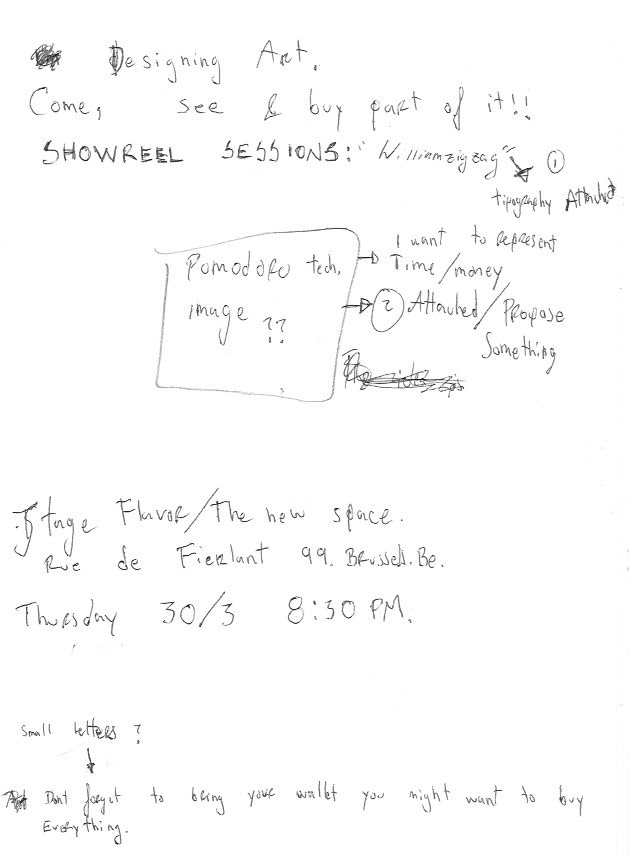 Designing Art.
Come, see & buy part of it!!
SHOWREEL SESSIONS: "Williamzigzag" 1
tipography Attached
I want to represent
Pomodoro tech. Time/money
image ?? 2 Attached/Propose
Something
Stage Flavor/The new space.
Rue de Fierlant 99. Brussels.Be.
Thursday 30/3 8:30 PM.
Small letters ?
Dont forget to bring your wallet you might want to buy
Everything.